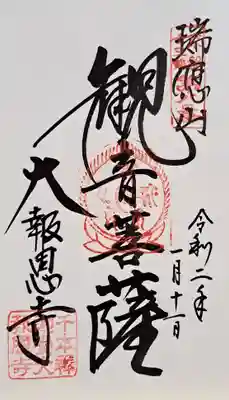 瑞應山
令和二年
一月十一日
観音菩薩
大報恩寺